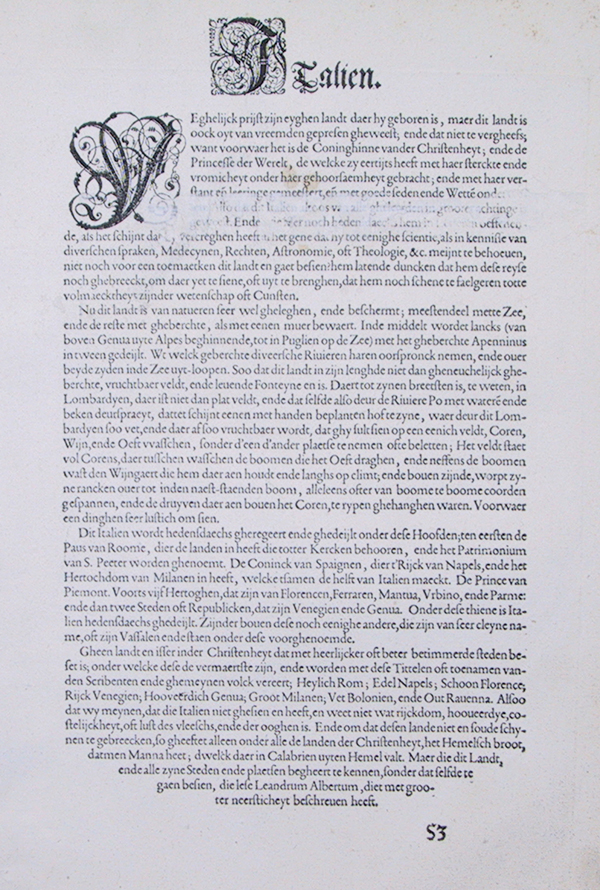 ITalien.
WEghelijck prijst zijn eyghen landt daer hy geboren is, maer dit landt is
oock oyt van vreemden gepresen gheweest; ende dat niet te vergheefs;
want voorwaer het is de Coninghinne vander Christenheyt; ende de
Princesse der Werelt, de welcke zy eertijts heeft met haer sterckte ende
vromicheyt onder haer gehoorsaemheyt gebracht; ende met haer ver-
stant eñ leeringe gemeestert, eñ met goede seden ende Wettẽ
Ende noch heden
de, als het schijnt dat vercreghen heeft gene dat hy tot eenighe scientie, als in kennisse van
diverschen spraken, Medecynen, Rechten, Astronomie, oft Theologie, &c. meijnt te behoeuen,
niet noch voor een toemaecken dit landt en gaet besien: hem latende duncken dat hem dese reyse
noch ghebreeckt, om daer yet te siene, oft uyt te brenghen, dat hem noch schene te faelgeren totte
volmaecktheyt zijnder wetenschap oft Cunsten.
Nu dit landt is van natueren seer wel gheleghen, ende beschermt; meestendeel mette Zee,
ende de reste met gheberchte, als met eenen muer bewaert. Inde middelt wordet lancks (van
boven Genua uyte Alpes beghinnende, tot in Puglien op de Zee) met het gheberchte Apenninus
in tween gedeijlt. Wt welck geberchte diveersche Riuieren haren oorspronck nemen, ende ouer
beyde zyden inde Zee uyt-loopen. Soo dat dit landt in zijn lenghde niet dan gheneuchelijck ghe-
berchte, vruchtbaer veldt, ende leuende Fonteyne en is. Daer tot zynen breetsten is, te weten, in
Lombardyen, daer ist niet dan plat veldt, ende dat selfde also deur de Riuiere Po met waterẽ ende
beken deurspraeyt, dattet schijnt eenen met handen beplanten hof te zyne, waer deur dit Lom-
bardyen soo vet, ende daer af soo vruchtbaer wordt, dat ghy sult sien op een eenich veldt, Coren,
Wijn, ende Oeft wasschen, sonder d'een d'ander plaetse te nemen ofte beletten; Het veldt staet
vol Corens, daer tusschen wasschen de boomen die het Oeft draghen, ende neffens de boomen
wast den Wijngaert die hem daer aen houdt ende langhs op climt; ende bouen zijnde, worpt zy-
ne rancken ouer tot inden naest-staenden boom, alleleens ofter van boome te boome coorden
gespannen, ende de druyven daer aen bouen het Coren, te rypen ghehanghen waren. Voorwaer
een dinghen seer lustich om sien.
Dit Italien wordt hedensdaechs gheregeert ende ghedeijlt onder dese Hoofden; ten eersten de
Paus van Roome, dier de landen in heeft die totter Kercken behooren, ende het Patrimonium
van S. Peeter worden ghenoemt. De Coninck van Spaignen, dier t'Rijck van Napels, ende het
Hertochdom van Milanen in heeft, welcke tsamen de helft van Italien maeckt. De Prince van
Piemont. Voorts vijf Hertoghen, dat zijn van Florencen, Ferraren, Mantua, Vrbino, ende Parme:
ende dan twee Steden oft Republicken, dat zijn Venegien ende Genua. Onder dese thiene is Ita-
lien hedensdaechs ghedeijlt. Zijnder bouen dese noch eenighe andere, die zijn van seer cleyne na-
me, oft zijn Vassalen ende staen onder dese voorghenoemde.
Gheen landt en isser inder Christenheyt dat met heerlijcker oft beter betimmerde steden be-
set is; onder welcke dese de vermaertste zijn, ende worden met dese Tittelen oft toenamen van-
den Scribenten ende ghemeynen volck vereert; Heylich Rom; Edel Napels; Schoon Florence;
Rijck Venegien; Hooveerdich Genua; Groot Milanen; Vet Bolonien, ende Out Rauenna. Alsoo
dat wy meynen, dat die Italien niet ghesien en heeft, en weet niet wat rijckdom, hooueerdye, co-
stelijckheyt, oft lust des vleeschs, ende der ooghen is. Ende om dat desen lande niet en soude schy-
nen te gebreecken, so gheeftet alleen onder alle de landen der Christenheyt, het Hemelsch broot,
datmen Manna heet; dwelck daer in Calabrien uyten Hemel valt. Maer die dit Landt,
ende alle zyne Steden ende plaetsen begheert te kennen, sonder dat selfde te
gaen besien, die lese Leandrum Albertum, diet met groo-
ter neersticheyt beschreuen heeft.
53